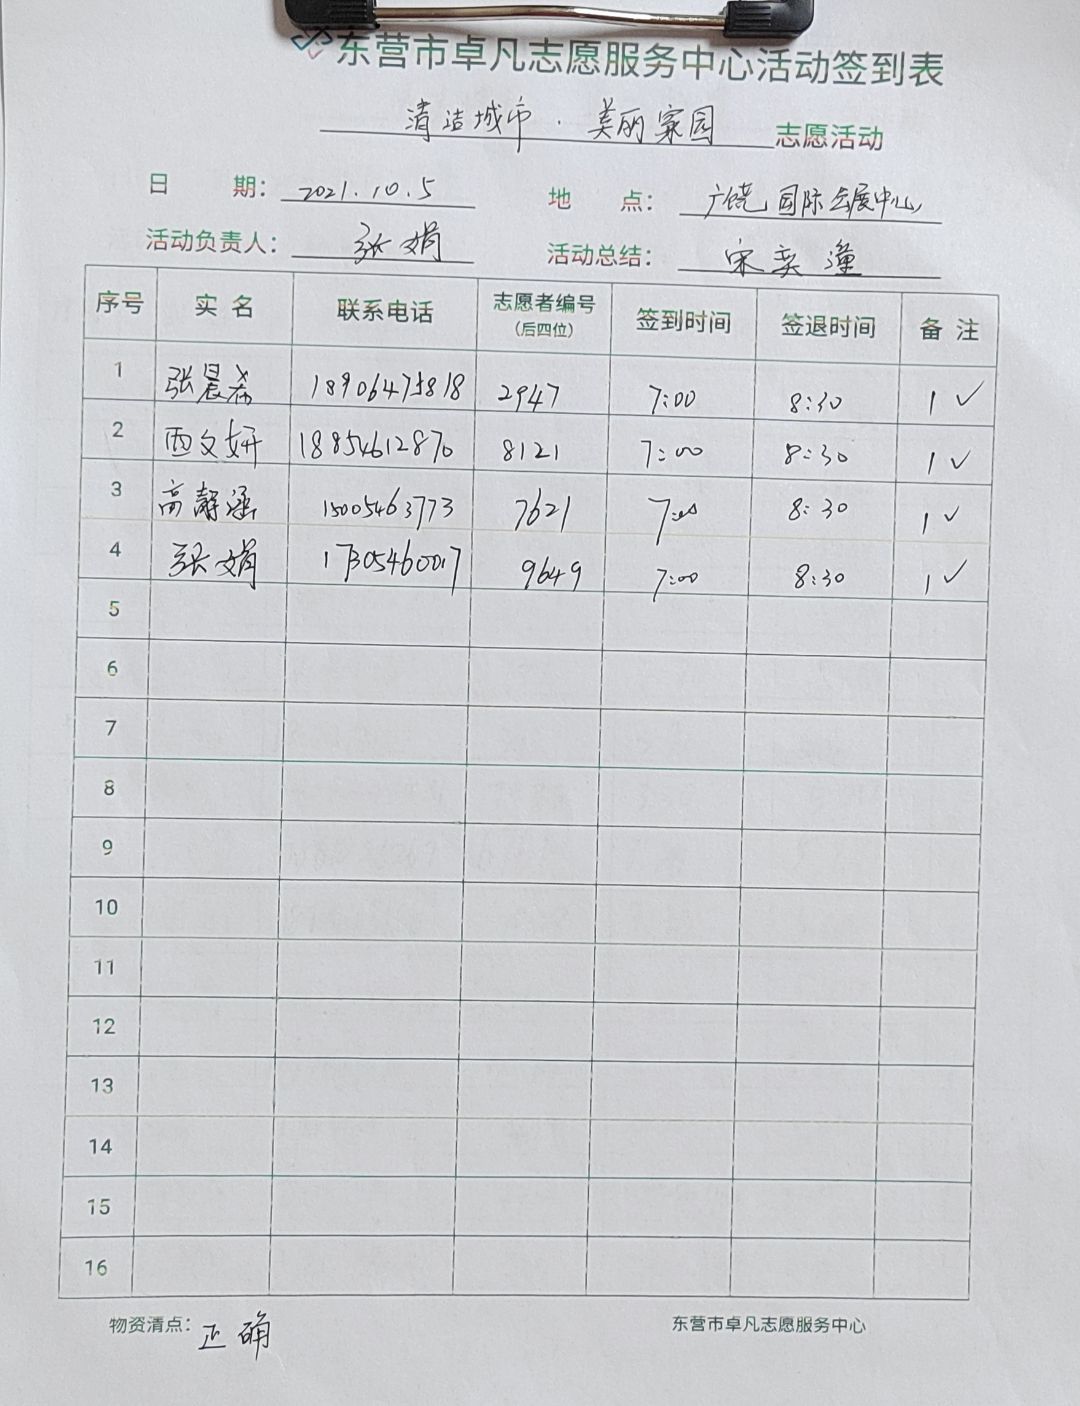 东营市卓凡志愿服务中心活动签到表
清洁城市·美丽家园 志愿活动
日 期： 2021.10.5 地 点： 广饶国际会展中心
活动负责人： 张娟 活动总结： 宋奕潼
序号 实名 联系电话 志愿者编号（后四位） 签到时间 签退时间 备注
1 张晨希 2947 7:00 8:30 1 ✓
2 西文妍 18854612870 8121 7:00 8:30 1 ✓
3 高静涵 15005463773 7621 7:00 8:30 1 ✓
4 张娟 17305460017 9649 7:00 8:30 1 ✓
5
6
7
8
9
10
11
12
13
14
15
16
物资清点： 正确 东营市卓凡志愿服务中心